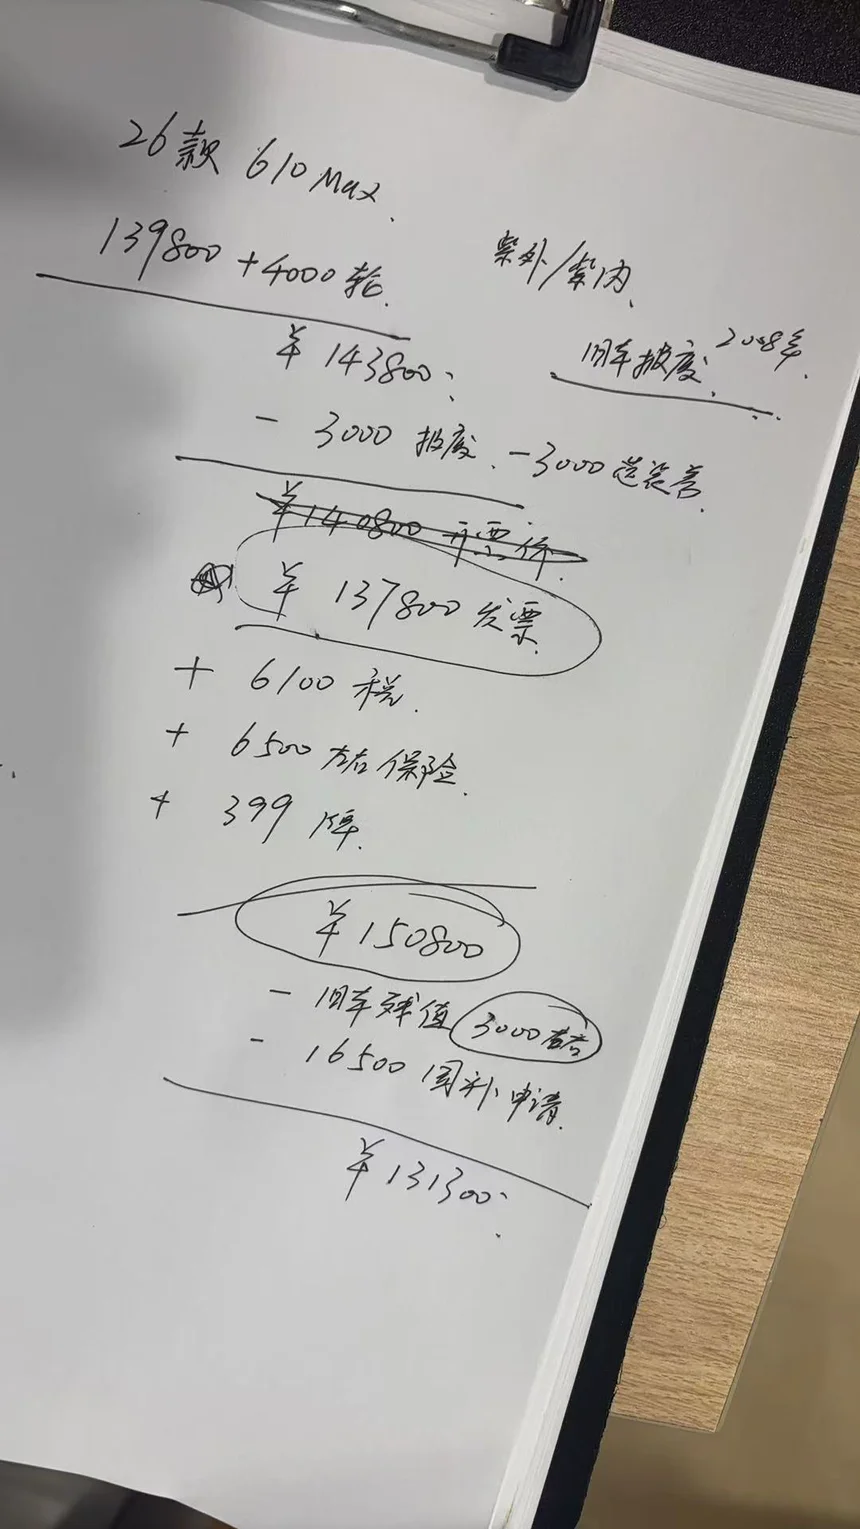 26款 610 Max.
139800 + 4000轮.
紫外/紫内.
旧车报废. 2008年.
¥ 143800.
- 3000 报废. - 3000
¥140800 开票价.
¥ 137800 发票.
+ 6100 税.
+ 6500 左右 保险.
+ 399 牌.
¥150800
- 旧车残值 3000左右
- 16500 国补申请.
¥131300.